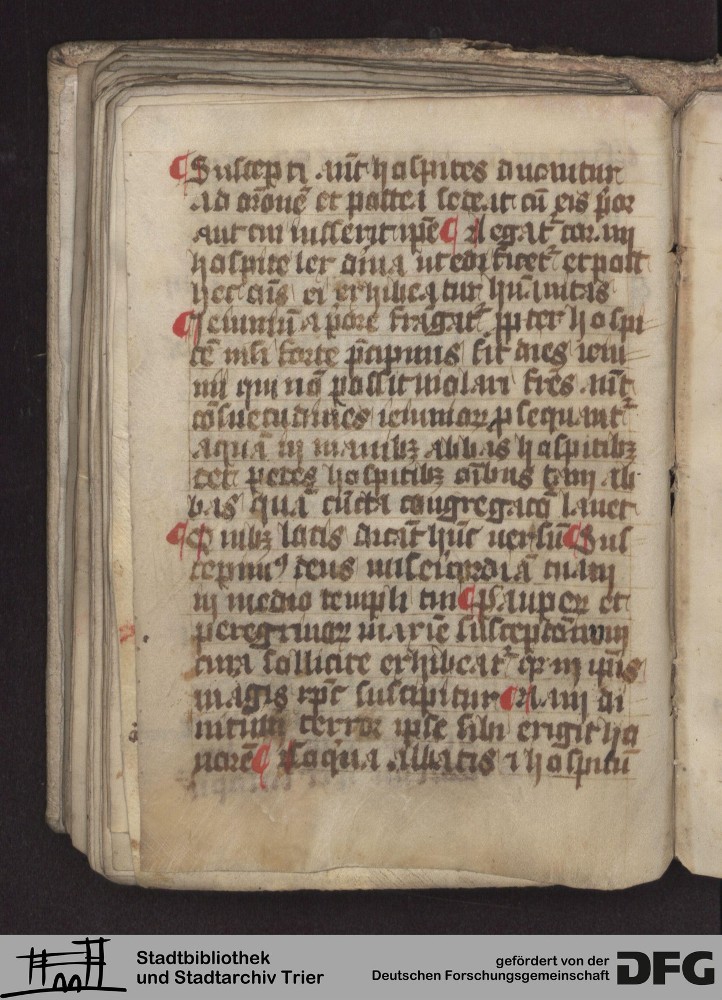 ¶ Suscepti aūt hospites ducuntur
ad or̄onē et postea sedeat cū eis p̄or
aut cui iusserit ipse ¶ Legat̄ corā
hospite lex diuina ut edificet̄ et post
hec oīs ei exhibeatur hūanitas
¶ Ieiuniū a p̄ore frāgat̄ ꝓpter hospi
tē nisi forte p̄cipuus sit dies ieiu
nii qui nō possit uiolari fr̄es aūt
cōsuetudines ieiuniorꝝ ꝓsequant̄
aquā in manibꝫ abbas hospitibꝫ
det pedes hospitibꝫ oībus tam ab
bas quā cūcta congregatō lauet
¶ Quibꝫ lotis dicāt hūc uersū ¶ Sus
cepimꝰ deus misericordiā tuam
in medio templi tui ¶ Pauperꝝ et
peregrinorꝝ maxīe susceptōnum
cura sollicite exhibeat̄ qꝛ in ip̄is
magis xp̄c suscipitur ¶ Nam di
uitum terror ipse sibi exigit ho
norē ¶ Coq̄na abbatis ⁊ hospitū
Stadtbibliothek
und Stadtarchiv Trier
gefördert von der
Deutschen Forschungsgemeinschaft
DFG